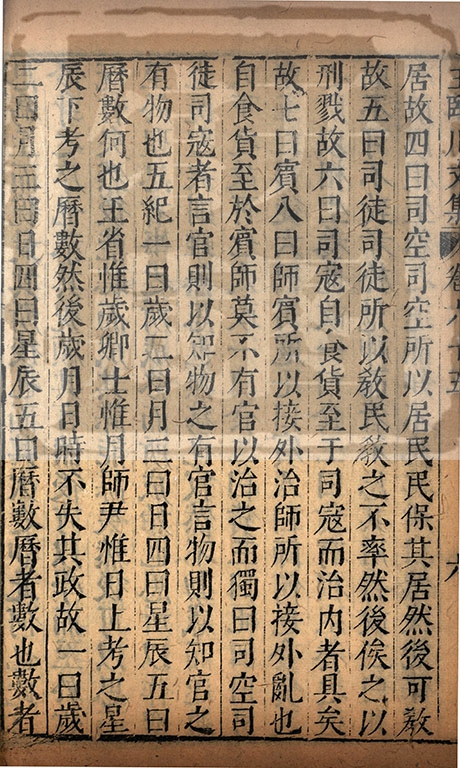 王臨川文集 卷六十五 六
居故四曰司空司空所以居民民保其居然後可敎
故五曰司徒司徒所以敎民敎之不率然後俟之以
刑戮故六曰司寇自食貨至于司寇而治內者具矣
故七曰賓八曰師賓所以接外治師所以接外亂也
自食貨至於賓師莫不有官以治之而獨曰司空司
徒司寇者言官則以知物之有官言物則以知官之
有物也五紀一曰歲二曰月三曰日四曰星辰五曰
曆數何也王省惟歲卿士惟月師尹惟日上考之星
辰下考之曆數然後歲月日時不失其政故一曰歲
二曰月三曰日四曰星辰五曰曆數曆者數也數者